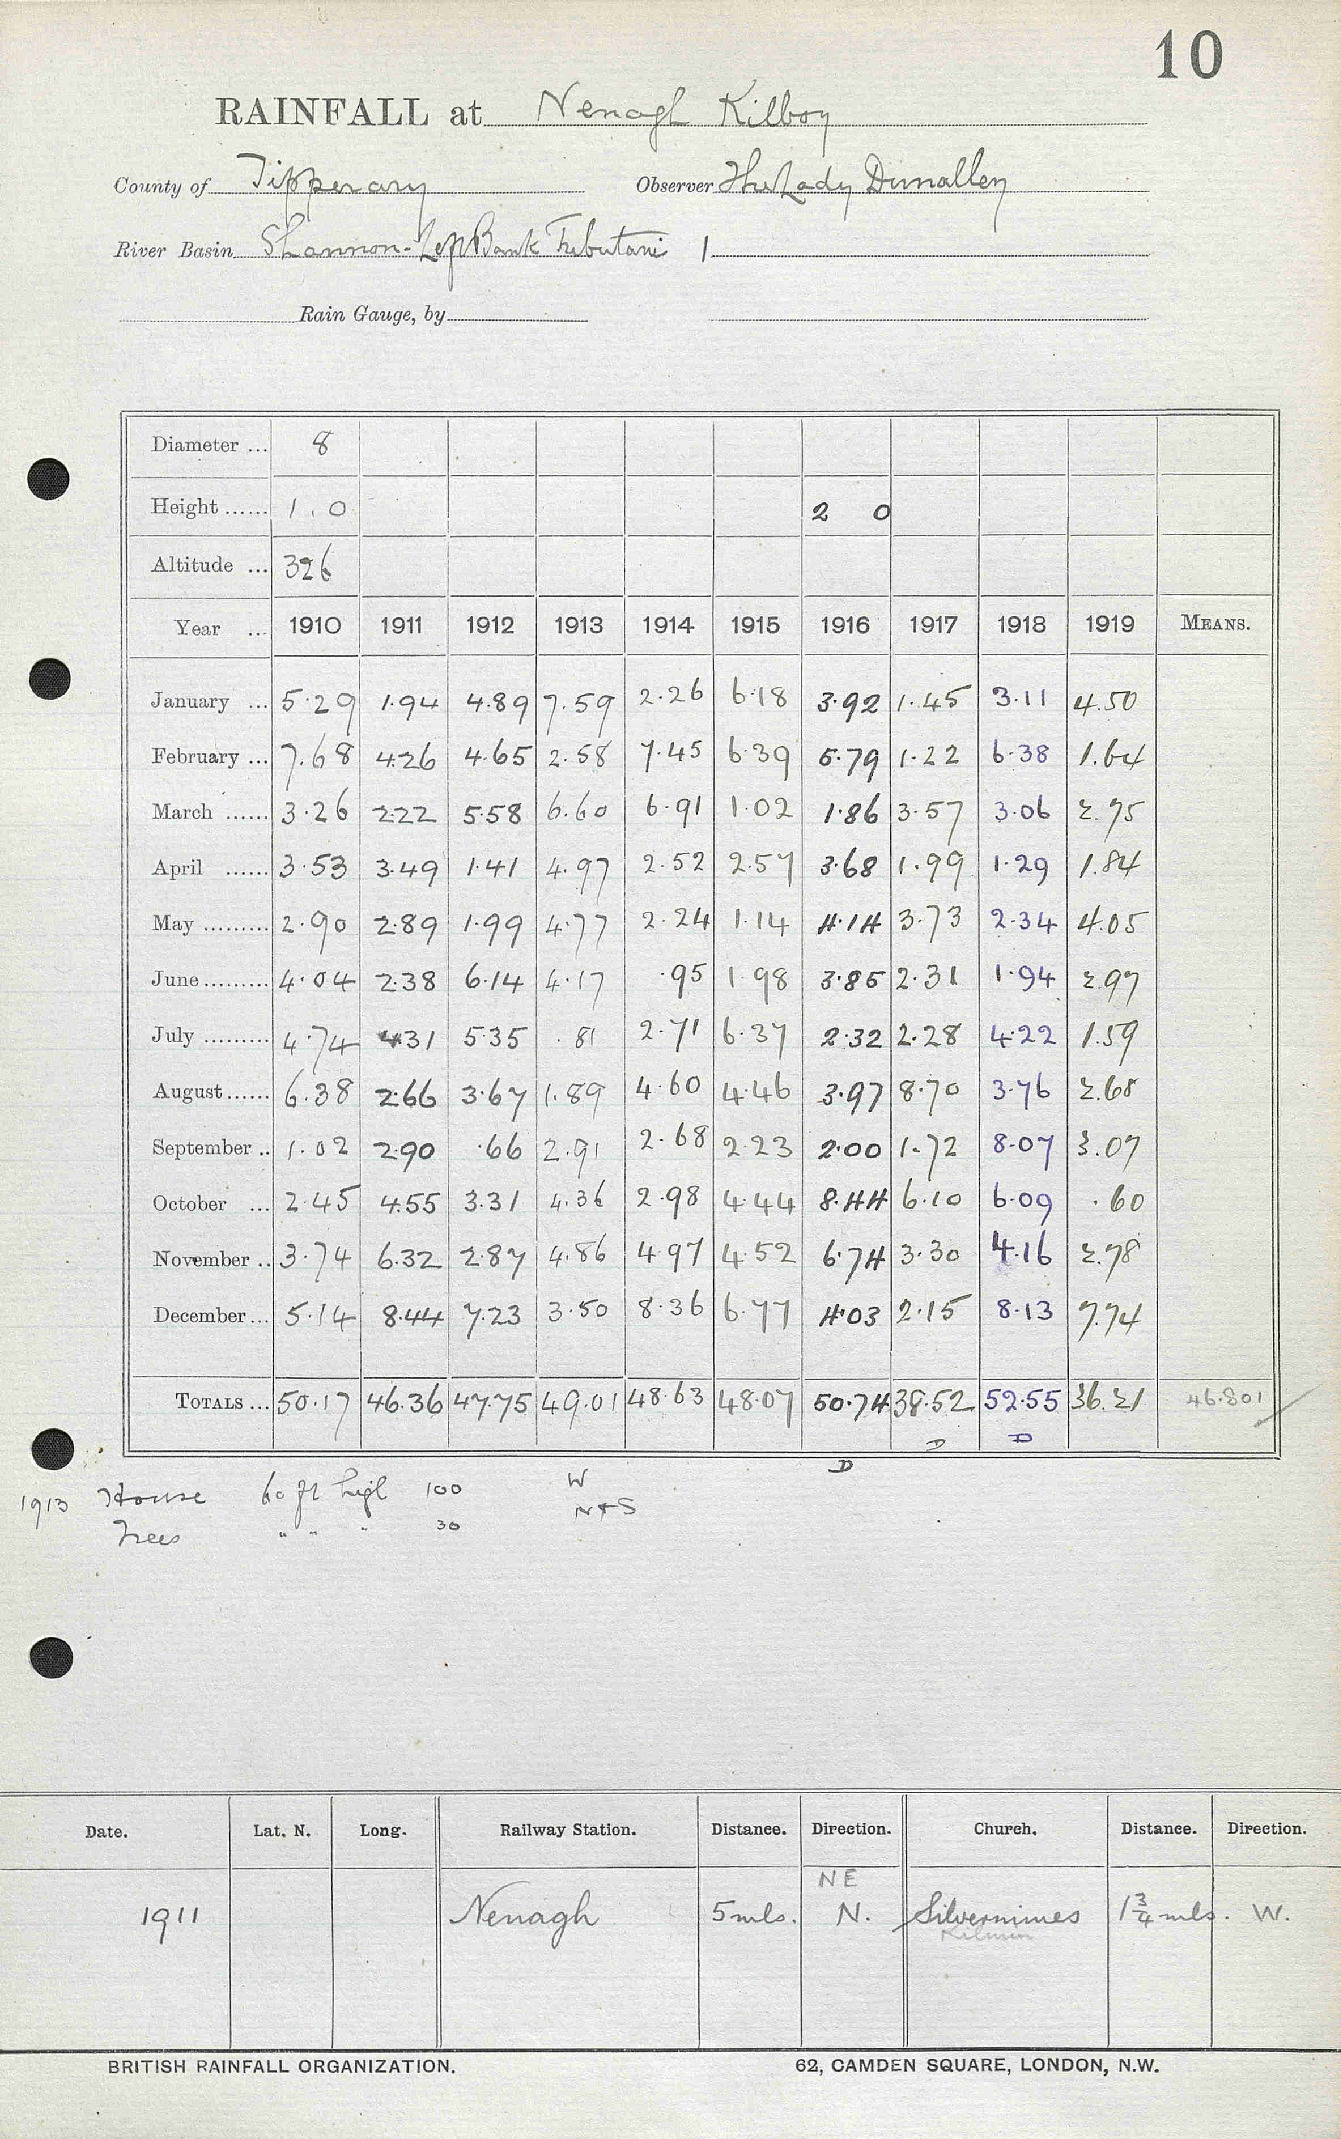 10
RAINFALL at Nenagh Kilboy
County of Tipperary Observer The Lady Dunalley
River Basin Shannon-Left Bank Tributari 1
Rain Gauge, by
Diameter ... 8
Height ...... 1.0 2 0
Altitude ... 326
Year ... 1910 1911 1912 1913 1914 1915 1916 1917 1918 1919 MEANS.
January ... 5.29 1.94 4.89 7.59 2.26 6.18 3.92 1.45 3.11 4.50
February ... 7.68 4.26 4.65 2.58 7.45 6.39 5.79 1.22 6.38 1.64
March ...... 3.26 2.22 5.58 6.60 6.91 1.02 1.86 3.57 3.06 2.75
April ...... 3.53 3.49 1.41 4.97 2.52 2.57 3.68 1.99 1.29 1.84
May ......... 2.90 2.89 1.99 4.77 2.24 1.14 4.14 3.73 2.34 4.05
June ......... 4.04 2.38 6.14 4.17 .95 1.98 3.85 2.31 1.94 2.97
July ......... 4.74 4.31 5.35 .81 2.71 6.37 2.32 2.28 4.22 1.59
August ...... 6.38 2.66 3.67 1.89 4.60 4.46 3.97 8.70 3.76 2.68
September .. 1.02 2.90 .66 2.91 2.68 2.23 2.00 1.72 8.07 3.07
October ... 2.45 4.55 3.31 4.36 2.98 4.44 8.44 6.10 6.09 .60
November .. 3.74 6.32 2.87 4.86 4.97 4.52 6.74 3.30 4.16 2.78
December ... 5.14 8.44 7.23 3.50 8.36 6.77 4.03 2.15 8.13 7.74
TOTALS ... 50.17 46.36 47.75 49.01 48.63 48.07 50.74 38.52 52.55 36.21 46.801
D D D
1913 House 60 ft high 100 W
Trees " " " 30 N+S
Date. Lat. N. Long. Railway Station. Distance. Direction. Church. Distance. Direction.
NE
1911 Nenagh 5 mls. N. Silvermines 1¾ mls. W.
BRITISH RAINFALL ORGANIZATION. 62, CAMDEN SQUARE, LONDON, N.W.